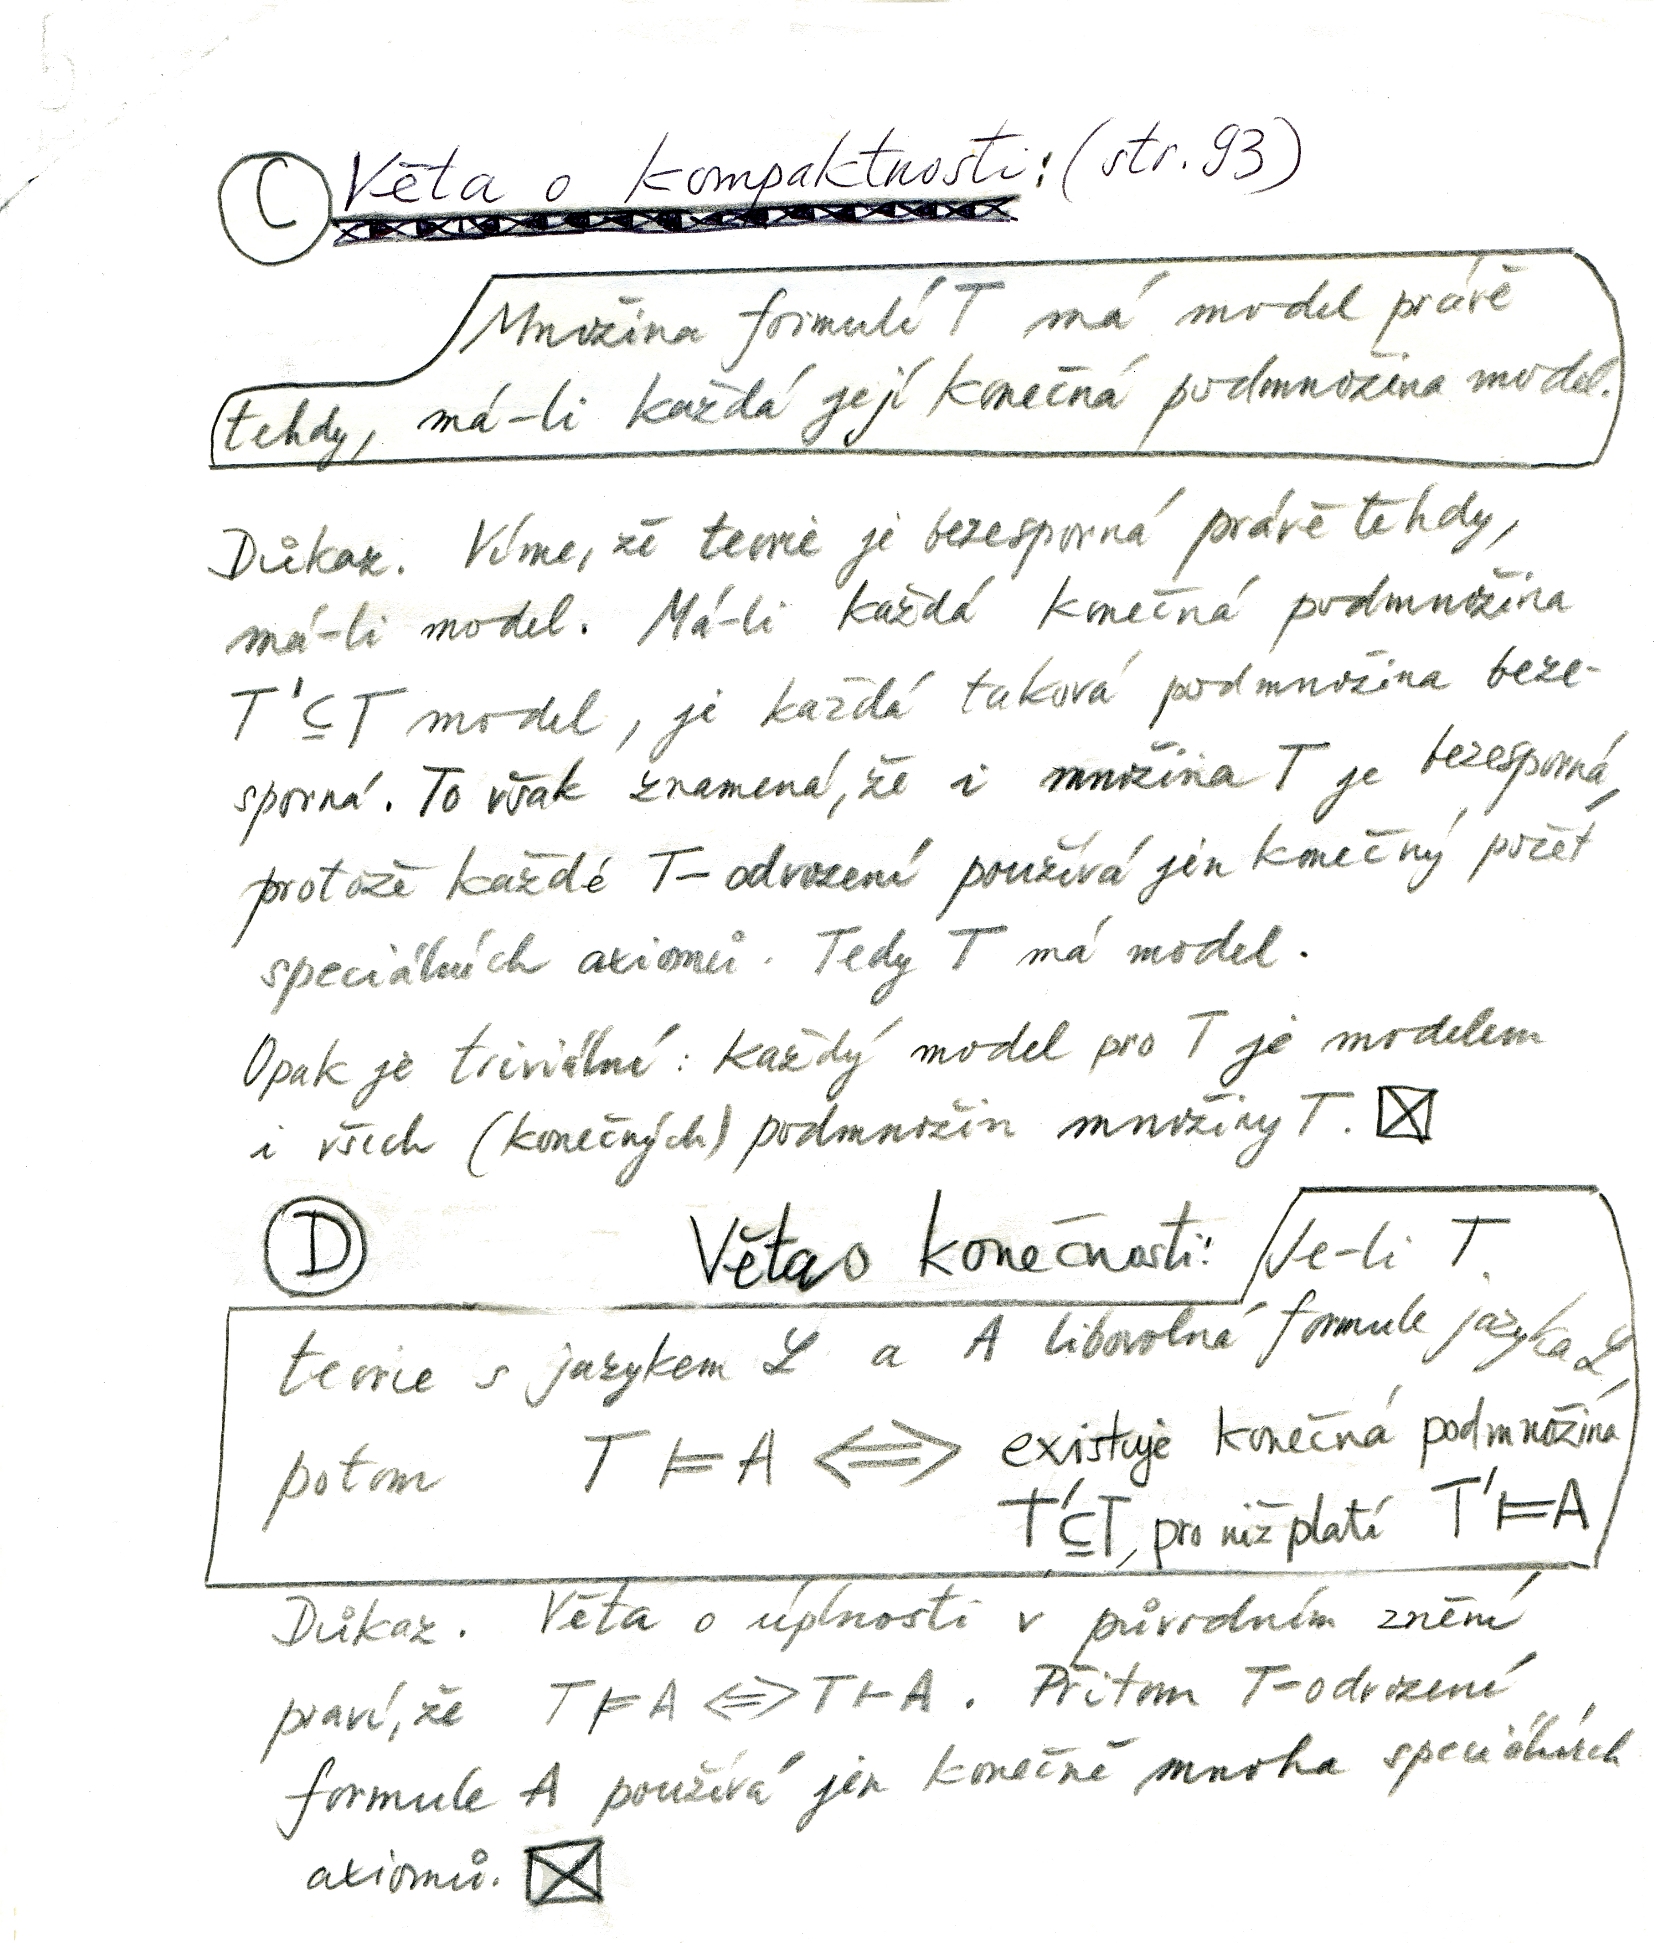 C Věta o kompaktnosti: (str. 93)
Množina formulí T má model právě
tehdy, má-li každá její konečná podmnožina model.
Důkaz. Víme, že teorie je bezesporná právě tehdy,
má-li model. Má-li každá konečná podmnožina
T'⊆T model, je každá taková podmnožina beze-
sporná. To však znamená, že i množina T je bezesporná,
protože každé T-odvození používá jen konečný počet
speciálních axiomů. Tedy T má model.
Opak je triviální: každý model pro T je modelem
i všech (konečných) podmnožin množiny T. ☒
D Věta o konečnosti: Je-li T
teorie s jazykem ℒ a A libovolná formule jazyka ℒ,
potom T ⊨ A ⟺ existuje konečná podmnožina
T'⊆T, pro niž platí T'⊨A
Důkaz. Věta o úplnosti v původním znění
praví, že T ⊨ A ⟺ T ⊢ A. Přitom T-odvození
formule A používá jen konečně mnoha speciálních
axiomů. ☒